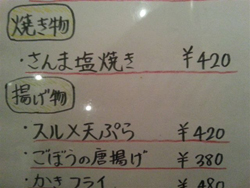 焼き物
・さんま塩焼き ¥420
揚げ物
・スルメ天ぷら ¥420
・ごぼうの唐揚げ ¥380
・かきフライ ¥480